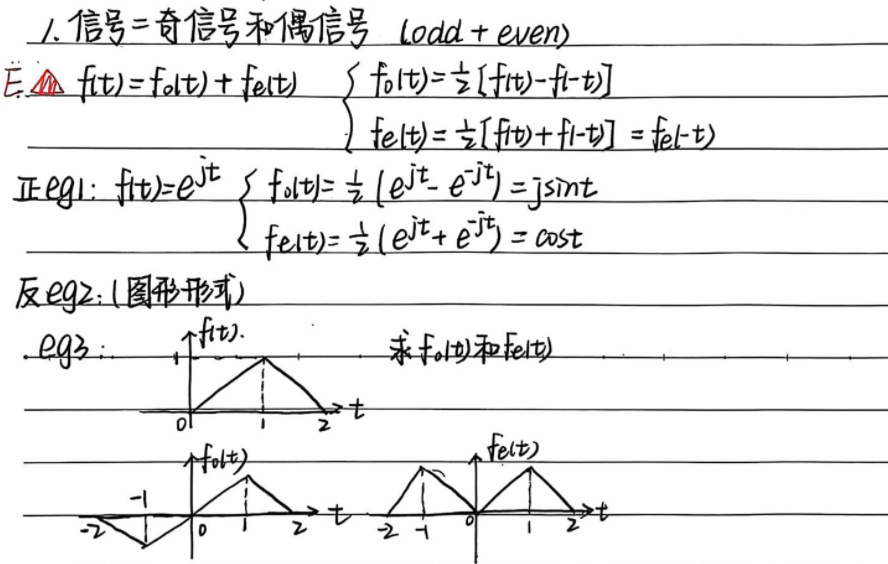 1. 信号=奇信号和偶信号 (odd + even)
E. f(t)=fo(t)+fe(t) { fo(t)=½[f(t)-f(-t)]
fe(t)=½[f(t)+f(-t)] = fe(-t)
正eg1: f(t)=e^jt { fo(t)=½(e^jt - e^-jt)=jsint
fe(t)=½(e^jt + e^-jt)=cost
反eg2:(图形形式)
eg3: f(t). 求fo(t)和fe(t)
1
0 1 2 t
fo(t) fe(t)
-1
-2 0 1 2 t -2 -1 0 1 2 t